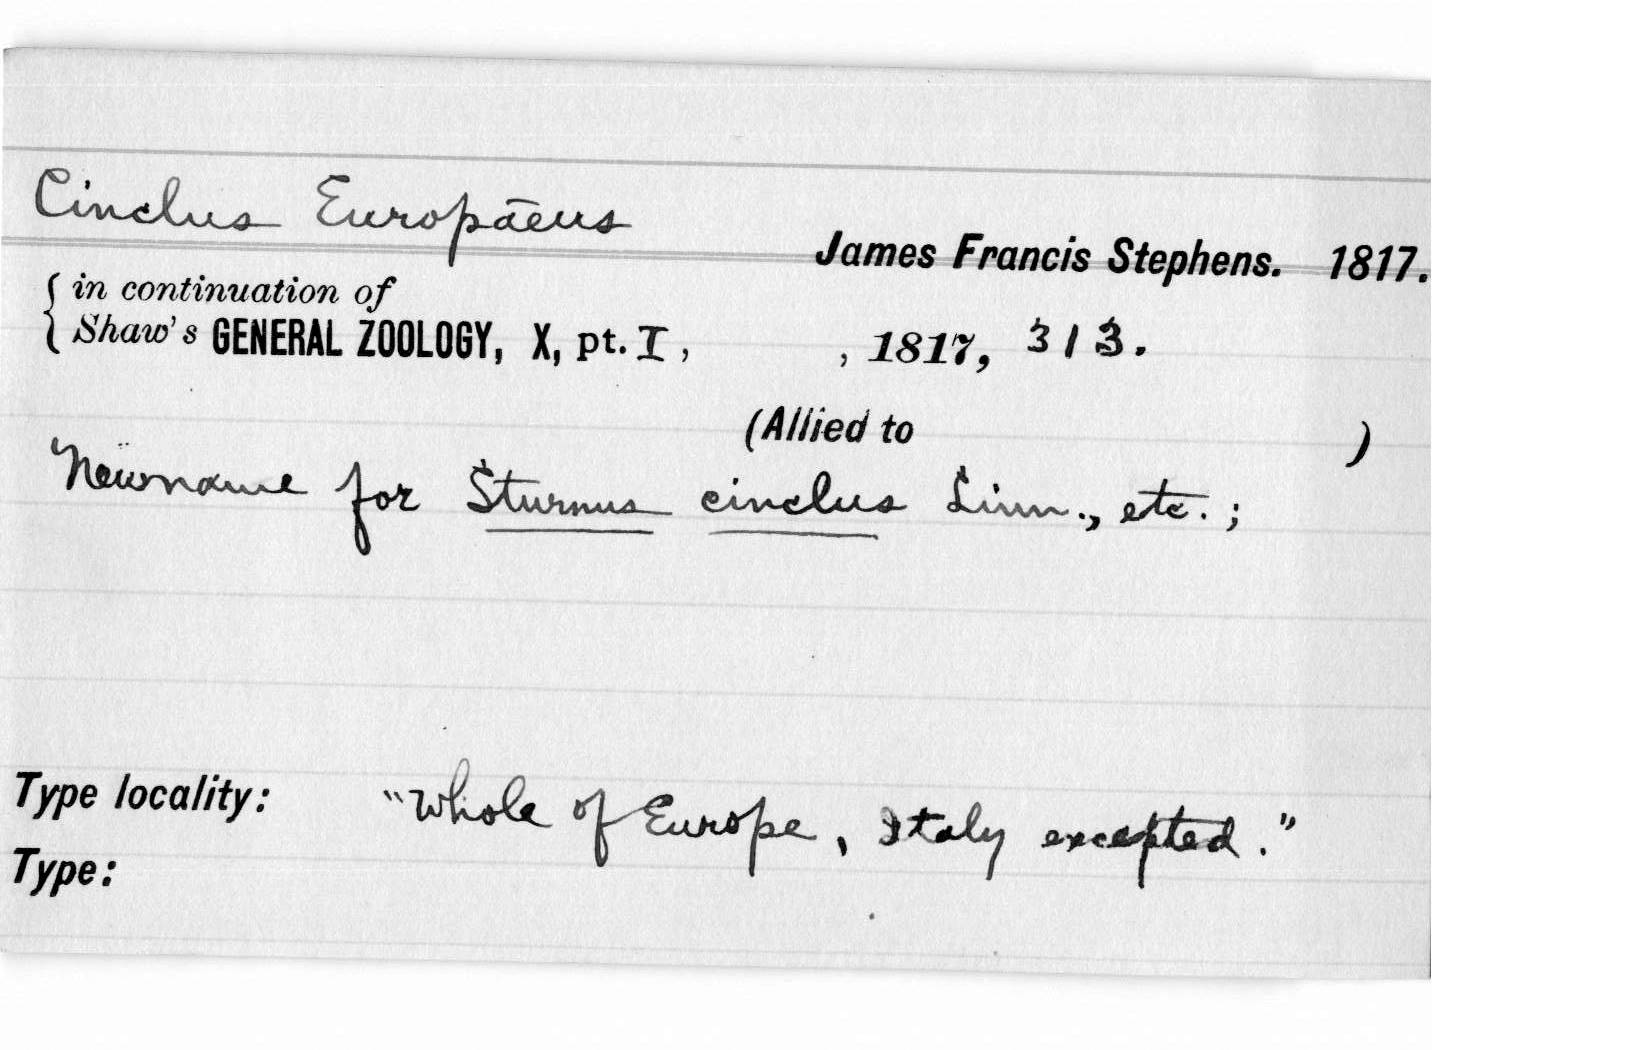 Cinclus Europaeus
James Francis Stephens. 1817.
{ in continuation of
Shaw's GENERAL ZOOLOGY, X, pt. I, , 1817, 313.
(Allied to )
New name for Sturnus cinclus Linn., etc. ;
Type locality: "Whole of Europe, Italy excepted."
Type: